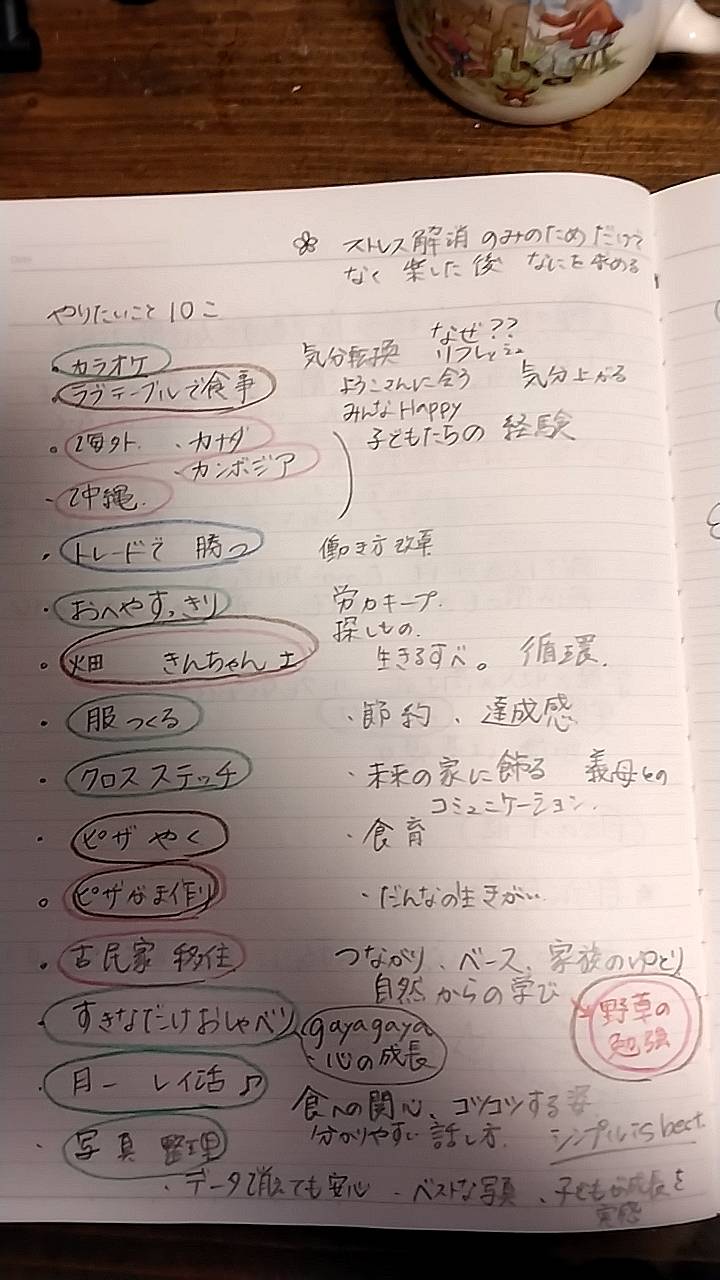 ストレス解消 のみのためだけで
なく 楽した後 なにを求める
やりたいこと 10こ
・カラオケ 気分転換 なぜ??
リフレッシュ
・ラブテーブルで食事 ようこさんに会う 気分上がる
みんなHappy
・海外 ・カナダ 子どもたちの 経験
・カンボジア
・沖縄
・トレードで 勝つ 働き方改革
・おへやすっきり 労力キープ.
探しもの.
・畑 きんちゃん土 生きるすべ。 循環.
・服つくる ・節約、達成感
・クロスステッチ ・未来の家に飾る 義母との
コミュニケーション.
・ピザ やく ・食育
・ピザがま作り ・だんなの生きがい
・古民家 移住 つながり、ベース、家族のゆとり
自然からの学び
野草の
勉強
・すきなだけおしゃべり gayagaya
・心の成長
・月一 レイ活♪ 食への関心、コツコツする姿
分かりやすい話し方. シンプル is best.
・写真 整理
・データ消えても安心 ・ベストな写真 、子どもの成長を
実感